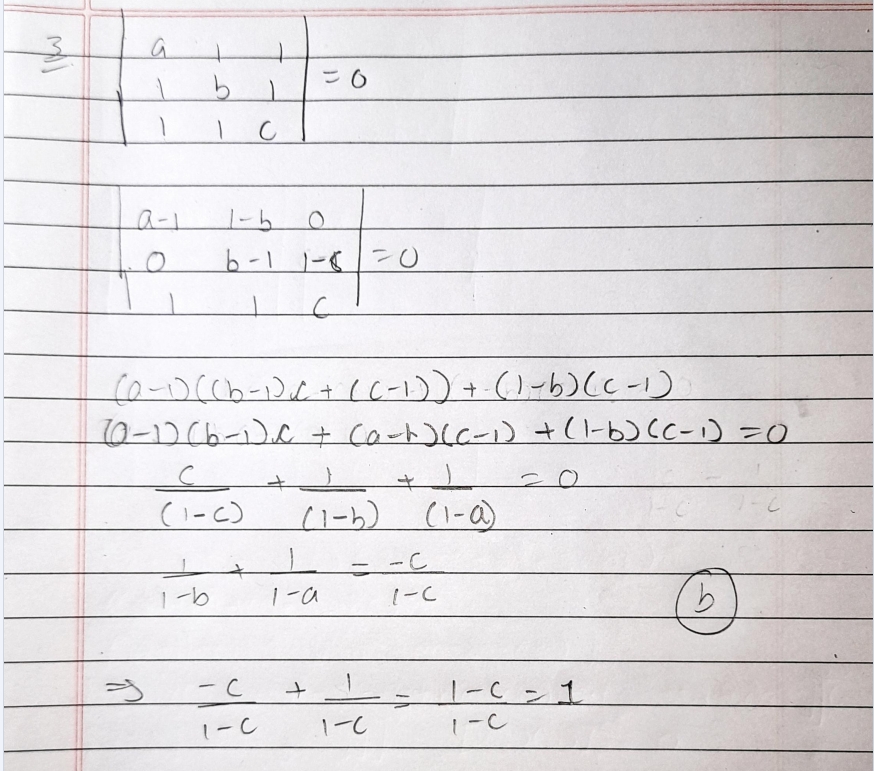 3 | a 1 1 |
| 1 b 1 | = 0
| 1 1 c |
| a-1 1-b 0 |
| 0 b-1 1-c | = 0
| 1 1 c |
(a-1)((b-1)c + (c-1)) + (1-b)(c-1)
(a-1)(b-1)c + (a-1)(c-1) + (1-b)(c-1) = 0
c/(1-c) + 1/(1-b) + 1/(1-a) = 0
1/1-b + 1/1-a = -c/1-c
b
⇒ -c/1-c + 1/1-c = 1-c/1-c = 1